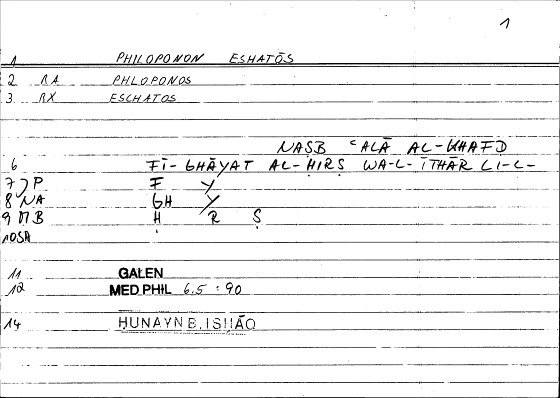 1
1 PHILOPONON ESHATŌS
2 RA PHLOPONOS
3 RX ESCHATOS
NASB ʿALĀ AL-KHAFD
6 FĪ-GHĀYAT AL-ḤIRṢ WA-L-ĪTHĀR LI-L-
7 P F Y
8 NA GH Y
9 MB Ḥ R Ṣ
10SA
11 GALEN
12 MED PHIL 6.5 : 90
14 HUNAYN B. ISHĀQ